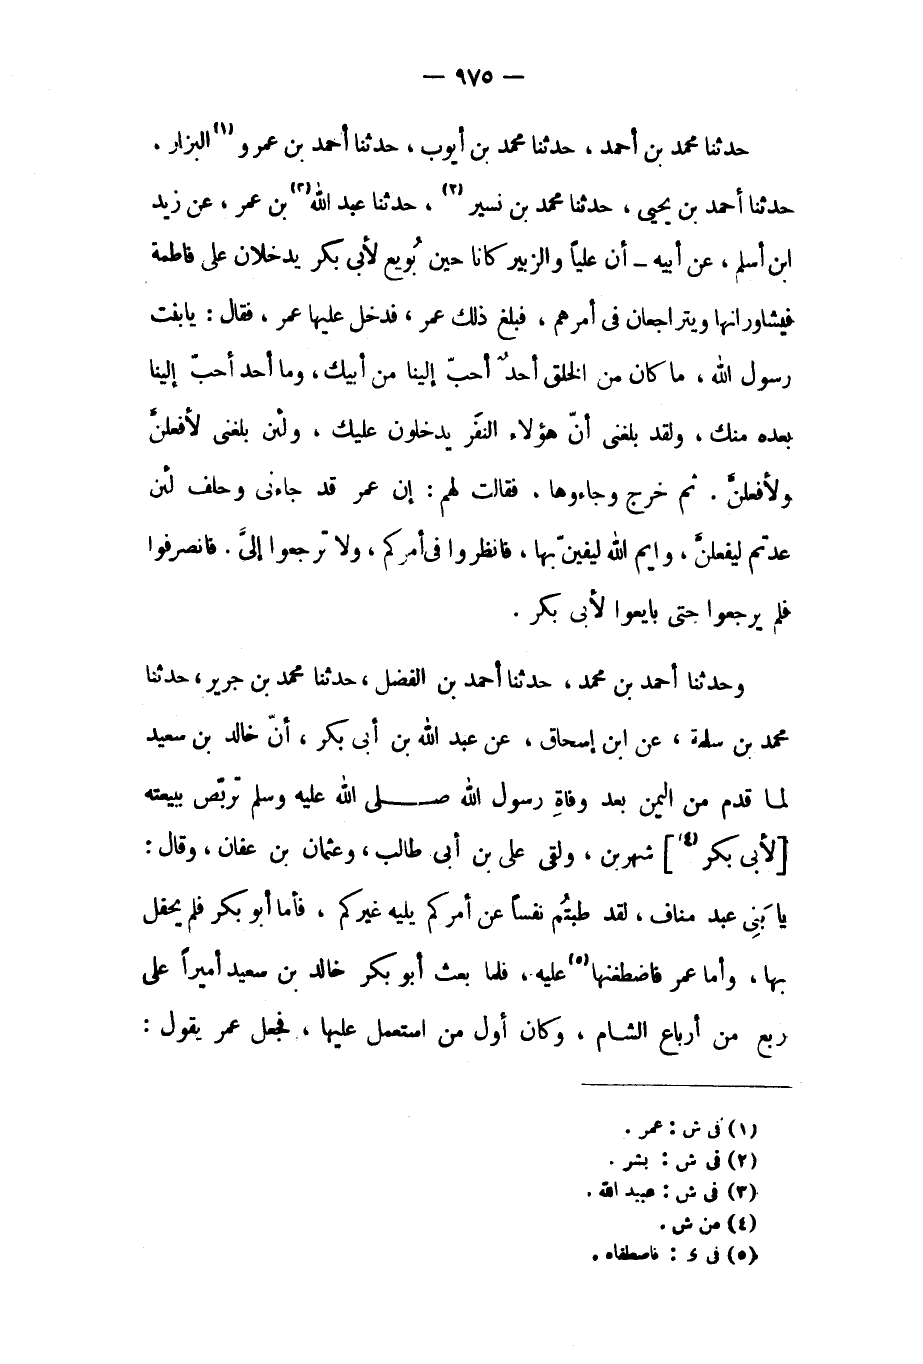 — ٩٧٥ —
حدثنا محمد بن أحمد ، حدثنا محمد بن أيوب ، حدثنا أحمد بن عمرو (١) البزار .
حدثنا أحمد بن يحيى ، حدثنا محمد بن نسير (٢) ، حدثنا عبد الله (٣) بن عمر ، عن زيد
ابن أسلم ، عن أبيه – أن علياً والزبير كانا حين بُويع لأبى بكر يدخلان على فاطمة
فيشاورانها ويتراجعان فى أمرهم ، فبلغ ذلك عمر ، فدخل عليها عمر ، فقال : يابنت
رسول الله ، ما كان من الخلق أحدٌ أحبّ إلينا من أبيك ، وما أحد أحبّ إلينا
بعده منك ، ولقد بلغنى أنّ هؤلاء النفَر يدخلون عليك ، ولئن بلغنى لأفعلنَّ
ولأفعلنَّ . ثم خرج وجاءوها . فقالت لهم : إن عمر قد جاءنى وحلف لئن
عدتم ليفعلنَّ ، وايم الله ليفينّ بها ، فانظروا فى أمركم ، ولا ترجعوا إلىَّ . فانصرفوا
فلم يرجعوا حتى بايعوا لأبى بكر .
وحدثنا أحمد بن محمد ، حدثنا أحمد بن الفضل ، حدثنا محمد بن جرير ، حدثنا
محمد بن سلمة ، عن ابن إسحاق ، عن عبد الله بن أبى بكر ، أنّ خالد بن سعيد
لما قدم من اليمن بعد وفاةِ رسول الله صلى الله عليه وسلم تربّص ببيعته
[لأبى بكر (٤)] شهرين ، ولقى على بن أبى طالب ، وعثمان بن عفان ، وقال :
يا بَنِى عبد مناف ، لقد طبتُم نفساً عن أمركم يليه غيركم ، فأما أبو بكر فلم يحفل
بها ، وأما عمر فاضطغنها (٥) عليه ، فلما بعث أبو بكر خالد بن سعيد أميراً على
ربع من أرباع الشام ، وكان أول من استعمل عليها ، فجعل عمر يقول :
(١) فى ش : عمر .
(٢) فى ش : بشر .
(٣) فى ش : عبيد الله .
(٤) من ش .
(٥) فى ى : فاصطفاه .